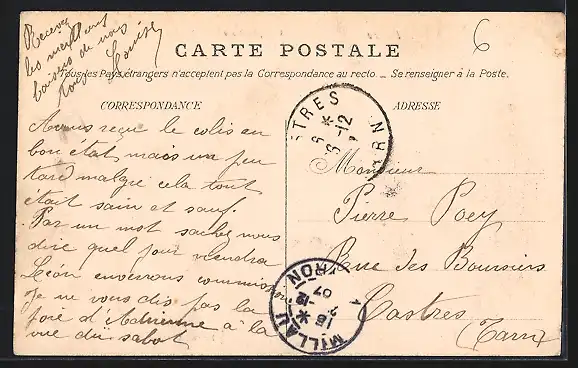 Recevez
les meilleurs
baisers de nous
tous Louise
6
CARTE POSTALE
Tous les Pays étrangers n'acceptent pas la Correspondance au recto. _ Se renseigner à la Poste.
CORRESPONDANCE
ADRESSE
Avons reçu le colis en
bon état mais un peu
tard malgré cela tout
était sain et sauf.
Par un mot
dire quel jour viendra
Léon enverrons commission
Je ne vous dis pas la
joie d'Adrienne à la
vue du sabot
Monsieur
Pierre Poey
Rue des Boursiers
Castres
(Tarn)
CASTRES
6 -12
TARN
MILLAU
AVEYRON
16
-12
07